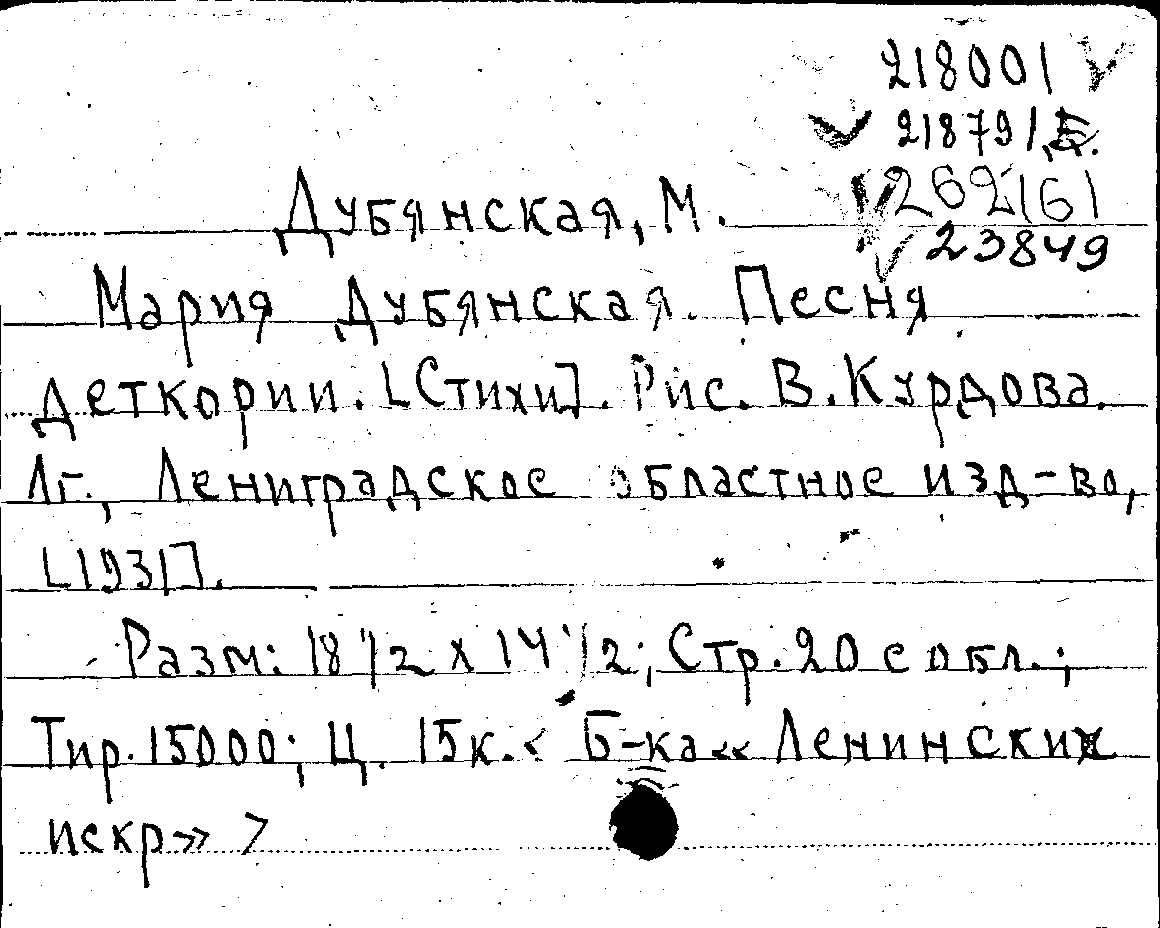 218001
21879/Б.
262161
23849
Дубянская, М.
Мария Дубянская. Песня
деткории. [Стихи]. Рис. В. Курдова.
Лг., Ленинградское областное изд-во,
[1931].
Разм: 18 1/2 х 14 1/2; Стр. 20 с обл.;
Тир. 15000; Ц. 15к. < Б-ка «Ленинских
искр» >